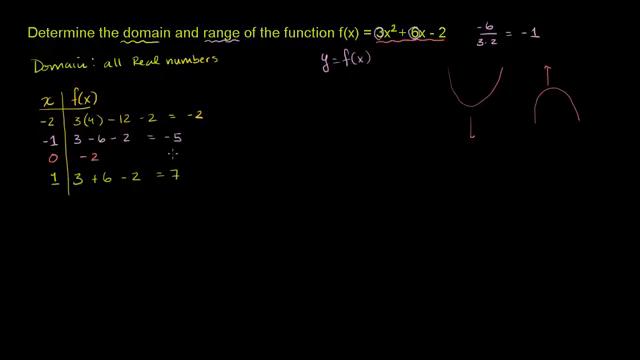 Determine the domain and range of the function f(x) = 3x² + 6x - 2
-6/3·2 = -1
Domain: all Real numbers
y = f(x)
x f(x)
-2 3(4) - 12 - 2 = -2
-1 3 - 6 - 2 = -5
0 -2
1 3 + 6 - 2 = 7